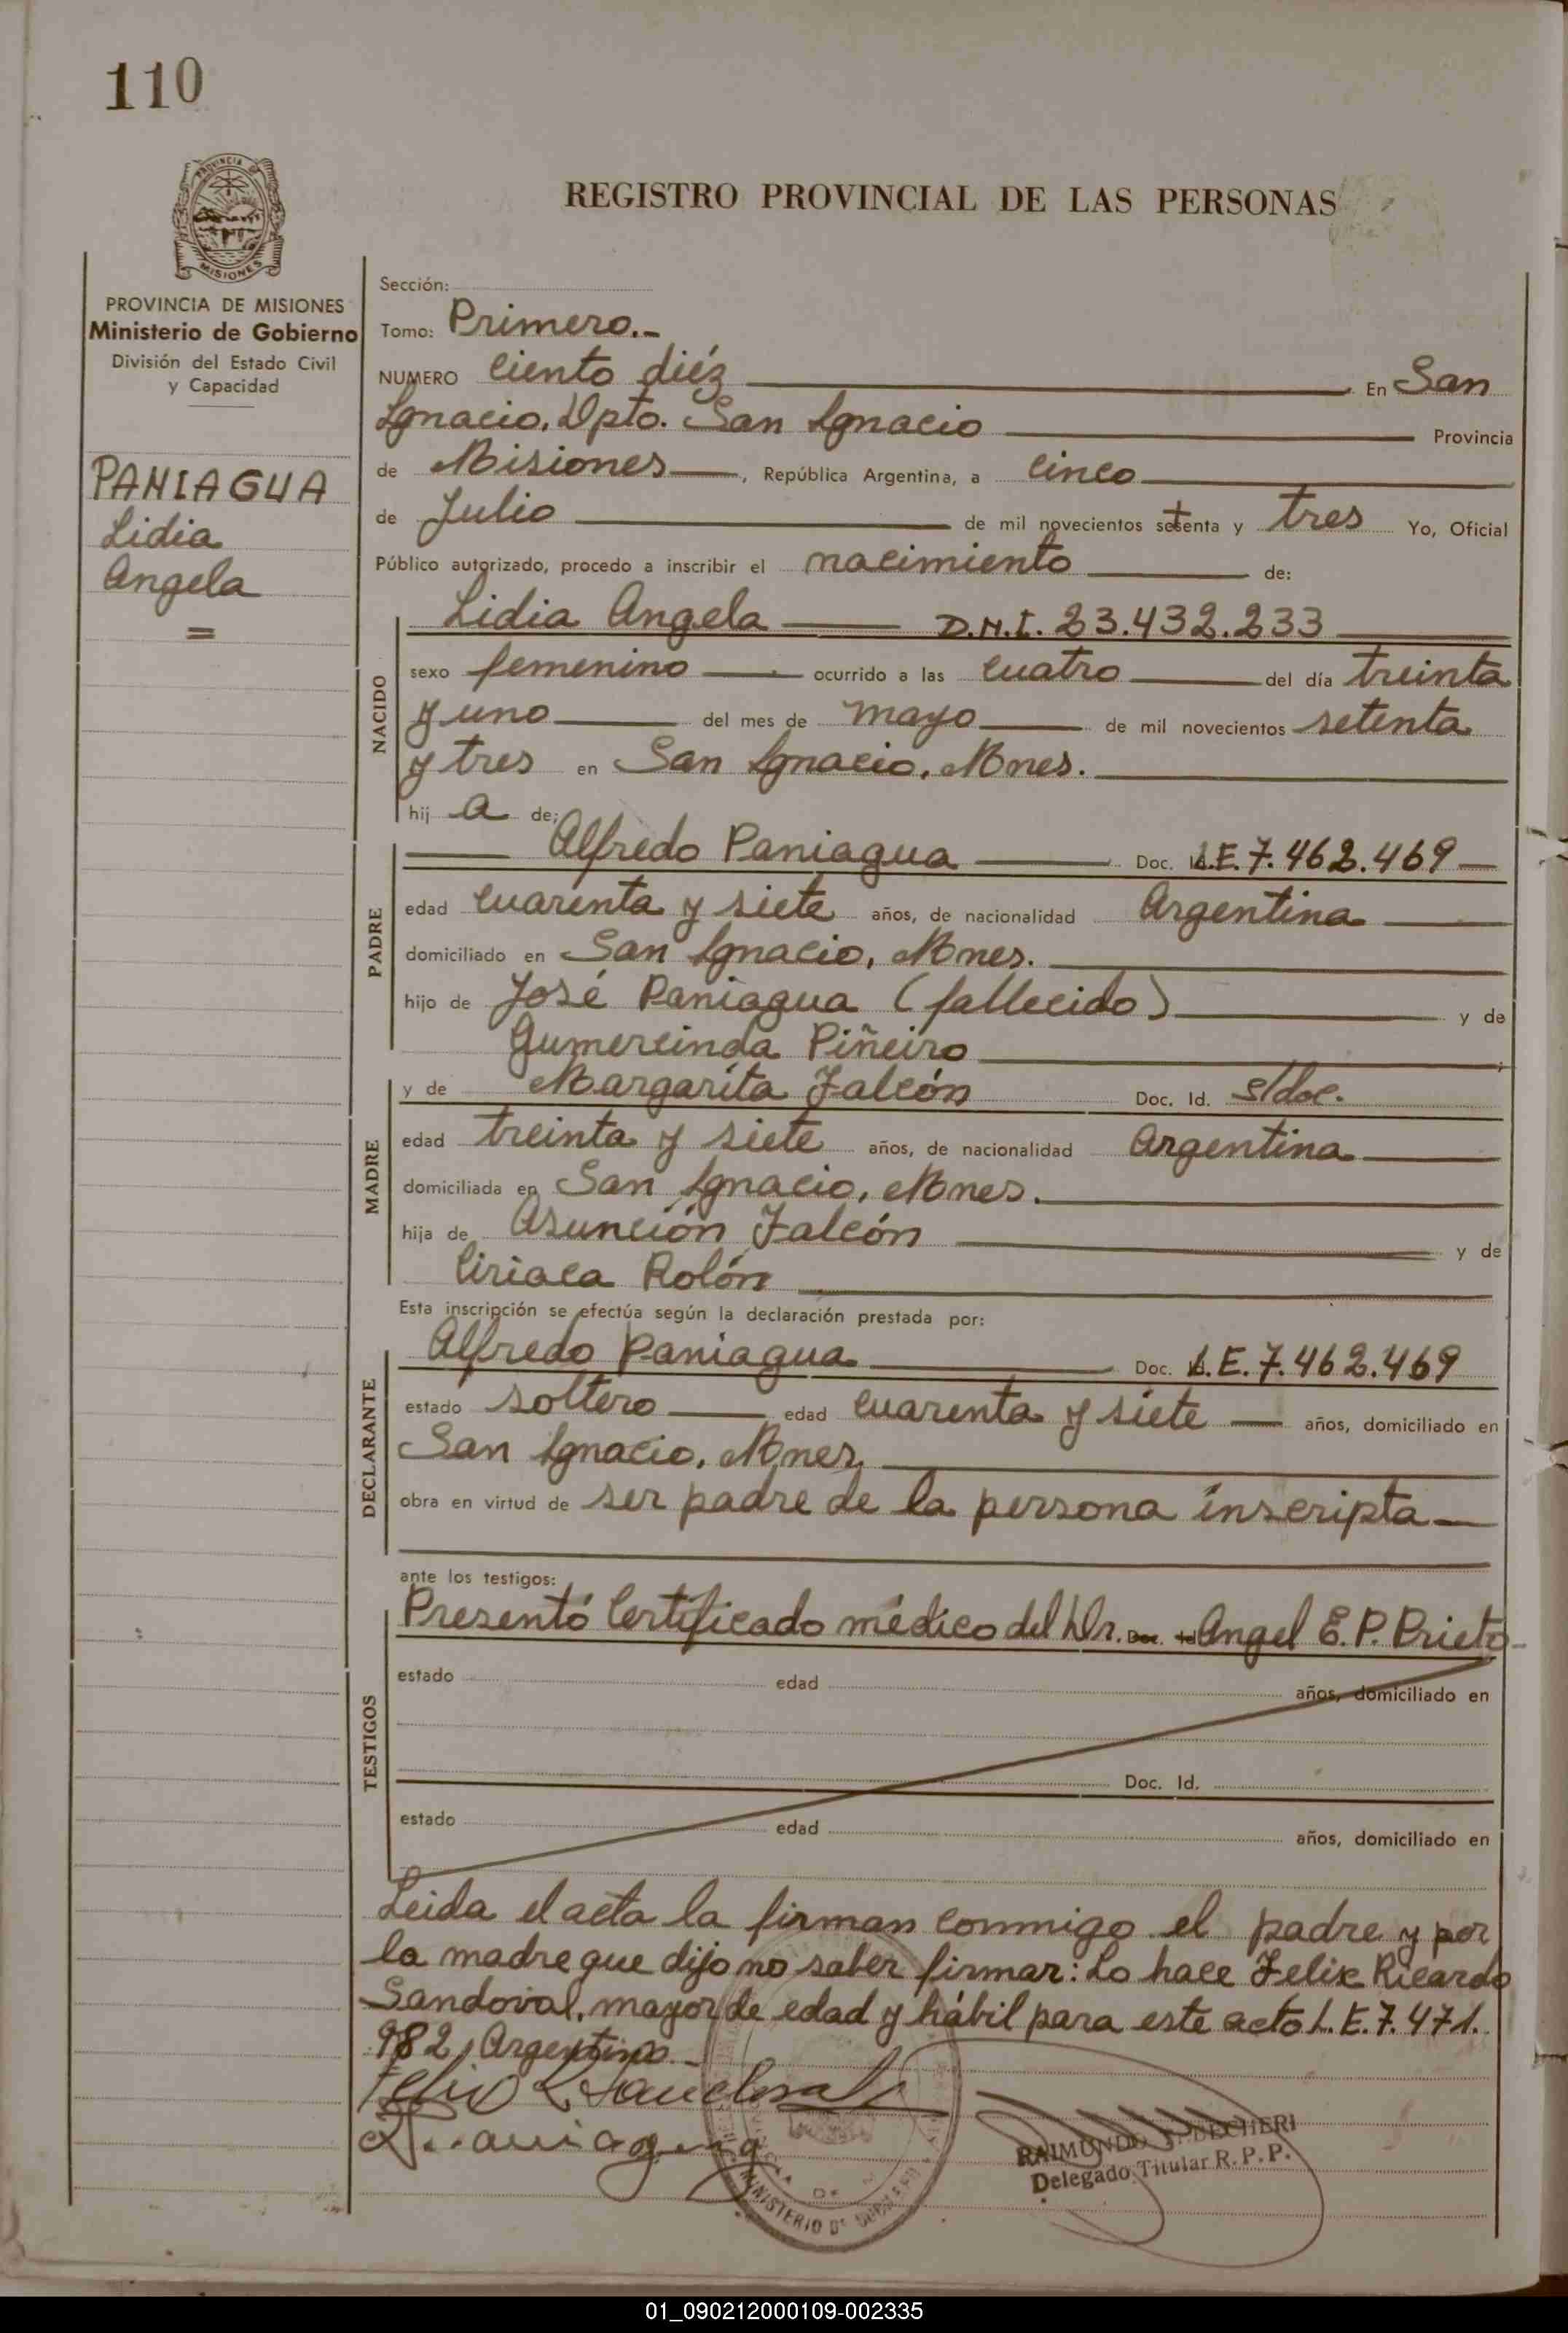 110
PROVINCIA DE
MISIONES
REGISTRO PROVINCIAL DE LAS PERSONAS
PROVINCIA DE MISIONES
Ministerio de Gobierno
División del Estado Civil
y Capacidad
PANIAGUA
Lidia
Angela
=
Sección:
Tomo: Primero.-
NUMERO Ciento diéz En San
Ignacio, Dpto. San Ignacio Provincia
de Misiones, República Argentina, a Cinco
de Julio de mil novecientos setenta y tres Yo, Oficial
Público autorizado, procedo a inscribir el nacimiento de:
NACIDO
Lidia Angela D.N.I. 23.432.233
sexo femenino ocurrido a las cuatro del día treinta
y uno del mes de mayo de mil novecientos setenta
y tres en San Ignacio, Mnes.
hij a de:
PADRE
Alfredo Paniagua Doc. L.E. 7.462.469
edad cuarenta y siete años, de nacionalidad Argentina
domiciliado en San Ignacio, Mnes.
hijo de José Paniagua (fallecido) y de
Gumercinda Piñeiro
MADRE
y de Margarita Falcón Doc. Id. s/doc.
edad treinta y siete años, de nacionalidad Argentina
domiciliada en San Ignacio, Mnes.
hija de Asunción Falcón y de
Ciriaca Rolón
Esta inscripción se efectúa según la declaración prestada por:
DECLARANTE
Alfredo Paniagua Doc. L.E. 7.462.469
estado soltero edad cuarenta y siete años, domiciliado en
San Ignacio, Mnes.
obra en virtud de ser padre de la persona inscripta
ante los testigos:
TESTIGOS
Presentó Certificado médico del Dr. Doc. Id Angel E.P. Prieto-
estado edad años, domiciliado en
Doc. Id.
estado edad años, domiciliado en
Leida el acta la firman conmigo el padre y por
la madre que dijo no saber firmar: Lo hace Felix Ricardo
Sandoval, mayor de edad y hábil para este acto L.E. 7.471.
982, Argentino.-
Felix R Sandoval
A. Paniagua
RAIMUNDO
Delegado Titular R.P.P.
MINISTERIO DE GOBIERNO
01_090212000109-002335